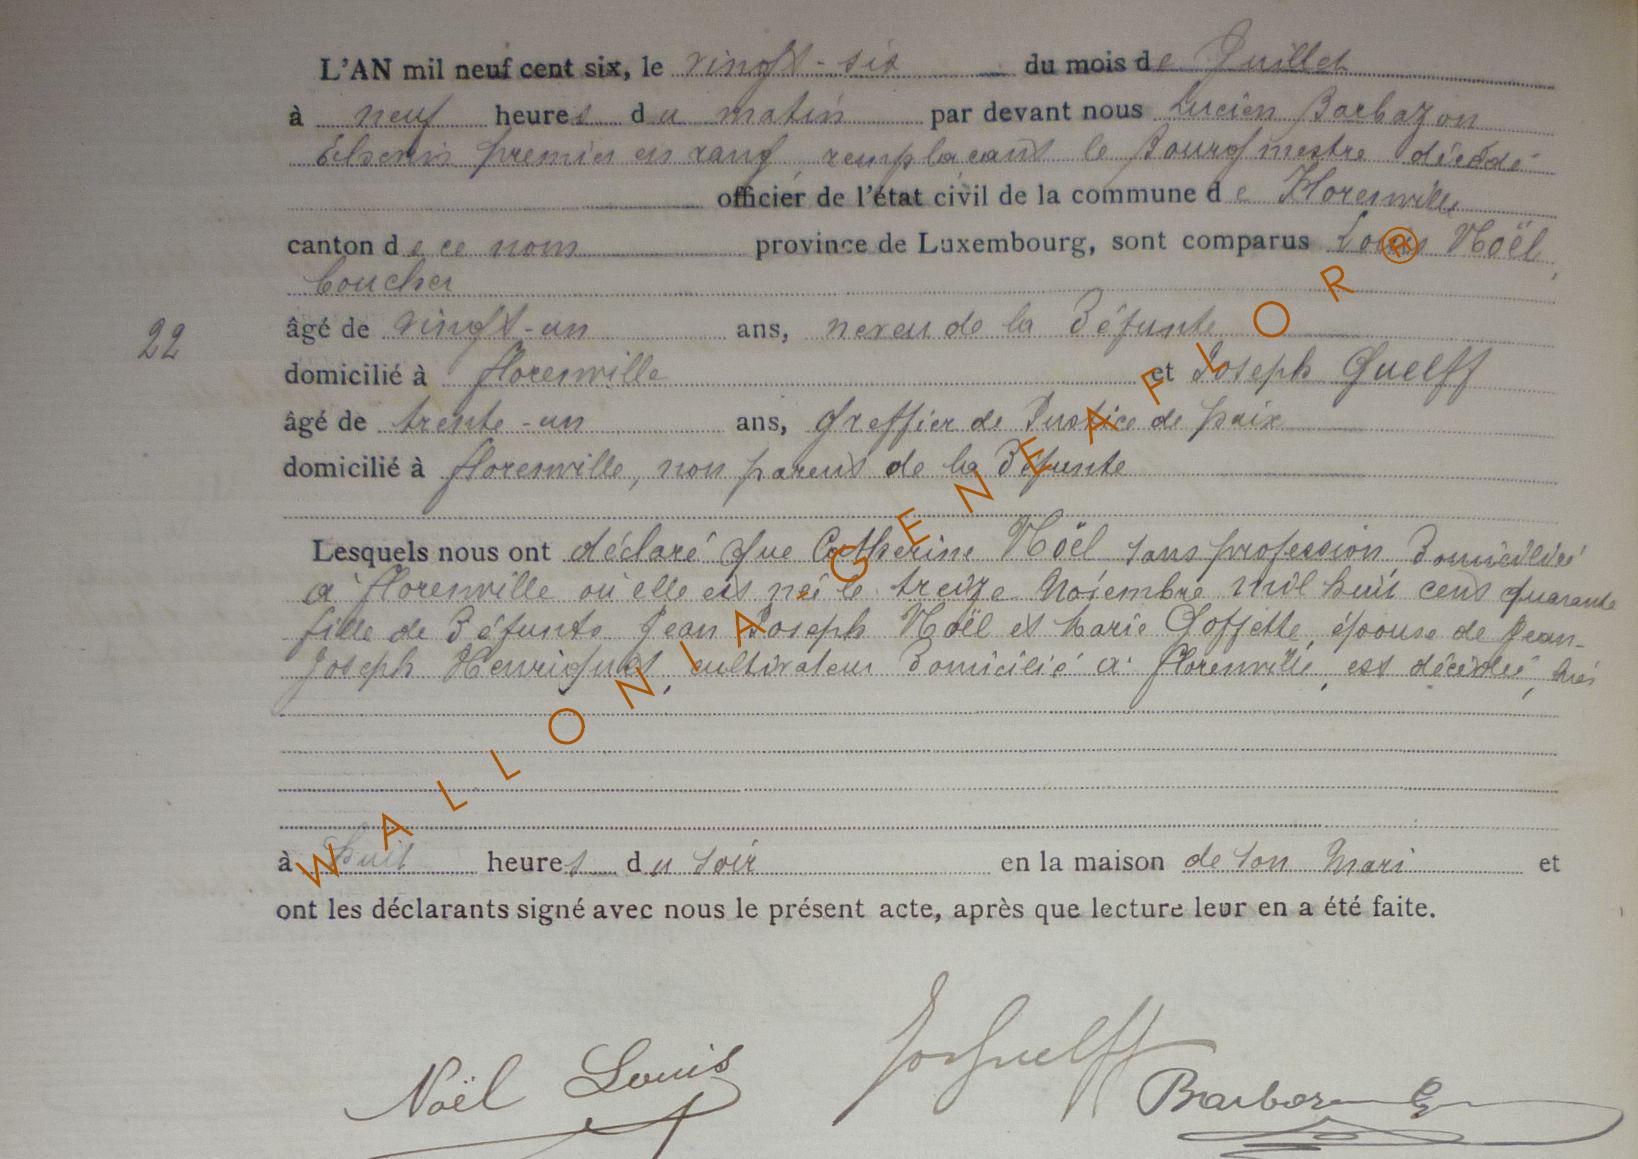 L'AN mil neuf cent six, le vingt-six du mois de Juillet
à neuf heures du matin par devant nous Lucien Barbazon
Echevin premier en rang, remplacant le Bourgmestre décédé
officier de l'état civil de la commune de Florenville
canton de ce nom province de Luxembourg, sont comparus Louis Noël,
boucher
22
âgé de vingt-un ans, neveu de la Défunte
domicilié à Florenville et Joseph Guelff
âgé de trente-un ans, Greffier de Justice de paix
domicilié à Florenville, non parent de la Défunte
Lesquels nous ont déclaré que Catherine Noël sans profession, Domiciliée
a Florenville où elle est née le treize Novembre mil huit cent quarante
fille de Défunts Jean Joseph Noël et Marie Goffette, épouse de Jean-
Joseph Henriquet, cultivateur Domicilié à Florenville, est décédée, hier
à huit heures du soir en la maison de son Mari et
ont les déclarants signé avec nous le présent acte, après que lecture leur en a été faite.
Noël Louis
Jos Guelff
Barbazon
WALLONIA-GENEAFLOR®